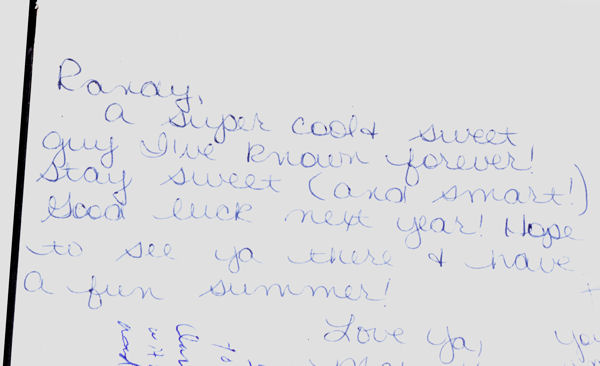 Randy,
A super cool & sweet
guy I've known forever!
Stay sweet (and smart!)
Good luck next year! Hope
to see ya there & have
a fun summer!
Love ya,
to